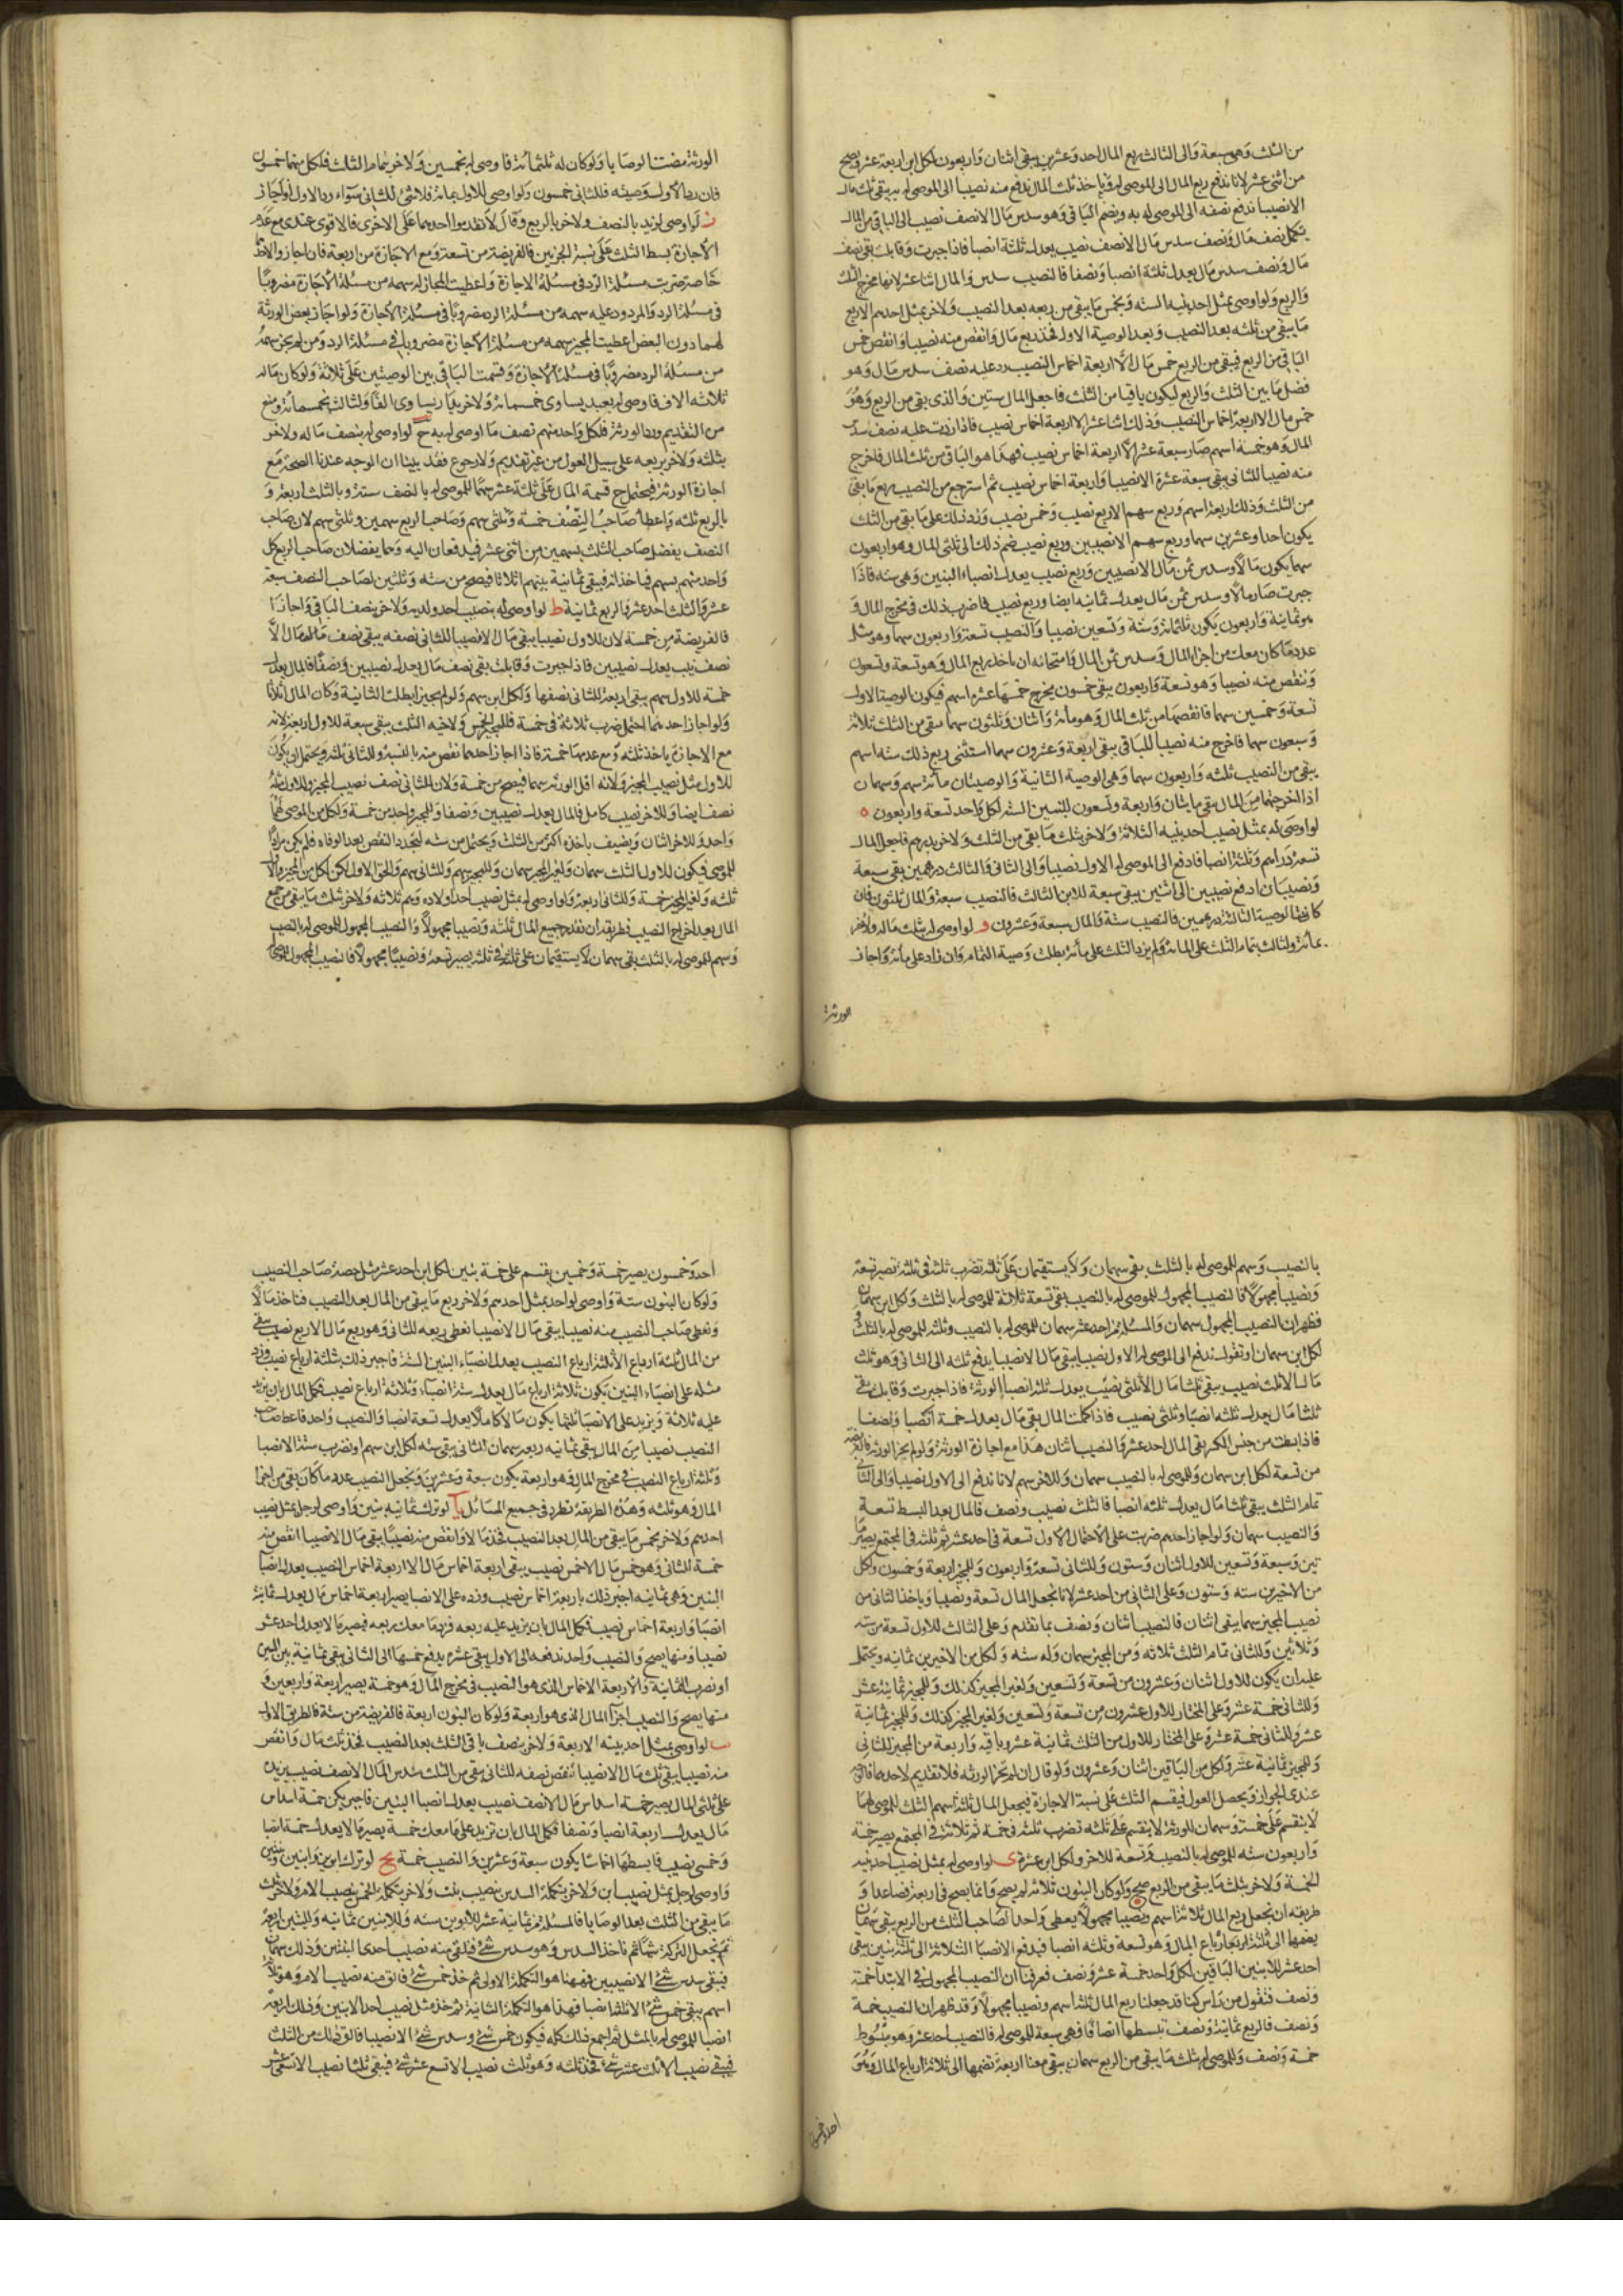 من الثلث وهى سبعة والى الثالث ربع المال احد وعشرين يبقى اثنان واربعون لكل ابن اربعة عشر ويصح
من اثنى عشر لانا ندفع ربع المال الى الموصى له وياخذ ثلث المال ندفع منه نصيبا الى الموصى له به يبقى ثلث مال
الا نصيبا ندفع نصفه الى الموصى له به ويضم الباقى وهو سدس مال الا نصف نصيب الى الباقى من المال
يكمل نصف مال ونصف سدس مال الا نصف نصيب يعدل ثلثة انصبا فاذا جبرت وقابلت بقى نصف
مال ونصف سدس مال يعدل ثلثة انصبا ونصفا فالنصيب سدس والمال اثنا عشر لانها مخرج الثلث
والربع ولو اوصى بمثل احد بنيه الستة وبخمس ما يبقى من ربعه بعد النصيب ولاخر بمثل احدهم الا ربع
ما يبقى من ثلثه بعد النصيب وبعد الوصية الاولى فخذ ربع مال وانقص منه نصيبا وانقص خمس
الباقى من الربع فيبقى من الربع خمس مال الا اربعة اخماس النصيب زد عليه نصف سدس مال وهو
فضل ما بين الثلث والربع ليكون باقيا من الثلث فاجعل المال ستين والذى بقى من الربع وهو
خمس مال الا اربعة اخماس النصيب وذلك اثنا عشر الا اربعة اخماس نصيب فاذا زدت عليه نصف سدس
المال وهو خمسة اسهم صار سبعة عشر الا اربعة اخماس نصيب فهذا هو الباقى من ثلث المال فاخرج
منه نصيبا للثانى يبقى سبعة عشر الا نصيبا واربعة اخماس نصيب ثم استرجع من النصيب ربع ما بقى
من الثلث وذلك اربعة اسهم وربع سهم الا ربع نصيب وخمس نصيب وزد ذلك على ما بقى من الثلث
يكون احدا وعشرين سهما وربع سهم الا نصيبين وربع نصيب ضم ذلك الى ثلثى المال وهو اربعون
سهما يكون مالا وسدس ثمن مال الا نصيبين وربع نصيب يعدل انصباء البنين وهى ستة فاذا
جبرت صار مالا وسدس ثمن مال يعدل ثمانية انصبا وربع نصيب فاضرب ذلك فى مخرج المال و
هو ثمانية واربعون يكون ثلثمائة وستة وتسعين نصيبا والنصيب تسعة واربعون سهما وهو مثل
عدد ما كان معك من اجزاء المال وسدس ثمن المال وامتحانه ان تاخذ ربع المال وهو تسعة وتسعون
وتنقص منه نصيبا وهو تسعة واربعون يبقى خمسون يخرج خمسها عشرة اسهم فيكون الوصية الاولى
تسعة وخمسين سهما فانقصها من ثلث المال وهو مائة واثنان وثلثون سهما يبقى من الثلث ثلاثة
وسبعون سهما فاخرج منه نصيبا للباقى يبقى اربعة وعشرون سهما استثنى ربع ذلك ستة اسهم
يبقى من النصيب ثلثه واربعون سهما وهى الوصية الثانية والوصيتان مائة سهم وسهمان
اذا اخرجتهما من المال بقى مايتان واربعة وتسعون للبنين الستة لكل واحد تسعة واربعون ه
لو اوصى له بمثل نصيب احد بنيه الثلاثة ولاخر بثلث ما بقى من الثلث ولاخر بدرهم فاجعل المال
تسعة دراهم وثلثة انصبا فادفع الى الموصى له الاول نصيبا والى الثانى والثالث درهمين بقى سبعة
ونصيبان ادفع نصيبين الى اثنين يبقى سبعة للابن الثالث فالنصيب سبعة والمال ثلثون فان
كانت الوصية الثالثة بدرهمين فالنصيب ستة والمال سبعة وعشرون و لو اوصى له بثلث ماله ولاخر
بمائة ولثالث بتمام الثلث على المائة ولم يزد الثلث على مائة بطلت وصية التمام وان زاد على مائة واجاز
الورثة
الورثة مضت الوصايا ولو كان له ثلثمائة فاوصى له بخمسين ولاخر بتمام الثلث فلكل منهما خمسون
فان رد الاول وصيته فللثانى خمسون ولو اوصى للاول بمائة فلا شئ للثانى سواء رد الاول او اجاز
ز لو اوصى لزيد بالنصف ولاخر بالربع وقال لا تقدموا احديهما على الاخرى فالاقوى عندى مع عدم
الاجازة بسط الثلث على نسبة الجزئين فالفريضة من تسعة ومع الاجازة من اربعة فان اجازوا لاحدهما
خاصة ضربت مسئلة الرد فى مسئلة الاجازة واعطيت المجاز له سهمه من مسئلة الاجازة مضروبا
فى مسئلة الرد والمردود عليه سهمه من مسئلة الرد مضروبا فى مسئلة الاجازة ولو اجاز بعض الورثة
لهما دون البعض اعطيت المجيز سهمه من مسئلة الاجازة مضروبا فى مسئلة الرد ومن لم يجز سهمه
من مسئلة الرد مضروبا فى مسئلة الاجازة وقسمت الباقى بين الوصيتين على ثلاثة ولو كان ماله
ثلاثة الاف فاوصى له بعبد يساوى خمسمائة ولاخر بدار يساوى الفا ولثالث بخمسمائة ومنع
من التقديم ورد الورثة فلكل واحد منهم نصف ما اوصى له به ح لو اوصى له بنصف ماله ولاخر
بثلثه ولاخر بربعه على سبيل العول من غير تقديم ولا رجوع فقد بينا ان الوجه عندنا الصحة مع
اجازة الورثة فيحتمل ح قسمة المال على ثلثة عشر سهما للموصى له بالنصف ستة وبالثلث اربعة و
بالربع ثلثه واعطاء صاحب النصف خمسة وثلثى سهم وصاحب الربع سهمين وثلثى سهم لان صاحب
النصف يفضل صاحب الثلث بسهمين من اثنى عشر فيدفعان اليه وهما يفضلان صاحب الربع كل
واحد منهم بسهم فياخذانه فيبقى ثمانية بينهم اثلاثا فيصح من ستة وثلثين لصاحب النصف سبعة
عشر والثلث احد عشر والربع ثمانية ط لو اوصى له بنصيب احد ولديه ولاخر بنصف الباقى واجازا
فالفريضة من خمسة لان للاول نصيبا يبقى مال الا نصيبا للثانى نصفه يبقى نصف مال الا
نصف نصيب يعدل نصيبين فاذا جبرت وقابلت بقى نصف مال يعدل نصيبين ونصفا فالمال يعدل
خمسة للاول سهم يبقى اربعة للثانى نصفها ولكل ابن سهم ولو لم يجيزا بطلت الثانية وكان المال اثلاثا
ولو اجاز احدهما احتمل ضرب ثلاثة فى خمسة فللمجيز الخمس ولاخيه الثلث يبقى سبعة للاول اربعة لانه
مع الاجازة ياخذ ثلثه ومع عدمها خمسة فاذا اجاز احدهما نقص منه بالنسبة وللثانى ثلثه ويحتمل ان يكون
للاول مثل نصيب المجيز ولانه اقل الورثة سهما فيصح من خمسة ولان للثانى نصف نصيب المجيز وللاول مثله
نصف ايضا وللاخر نصيب كامل فالمال يعدل نصيبين ونصفا وللمجيز واحد من خمسة ولكل من الموصى لهما
واحد وللاخر اثنان ويضيف باخذه اكثر من الثلث ويحتمل من ستة لتجدد النقص بعد الوفاة فلم يكن مرادا
للموصى فيكون للاول الثلث سهمان ولغير المجيز سهمان وللمجيز سهم وللثانى سهم والحق الاول لكن لكل من المجيز
ثلثه ولغير المجيز خمسة وللثانى اربعة ولو اوصى له بمثل نصيب احد اولاده وهم ثلاثة ولاخر ثلث ما يبقى من جميع
المال بعد اخراج النصيب فطريقه ان تقدر جميع المال ثلثة ونصيبا مجهولا والنصيب المجهول للموصى له بالنصيب
وسهم للموصى له بالثلث بقى سهمان لا يستقيمان على ثلثة فى ثلثه يصير تسعة ونصيبا مجهولا فالنصيب المجهول للموصى له
بالنصيب وسهم للموصى له بالثلث بقى سهمان ولا يستقيمان على ثلثة تضرب ثلثة فى ثلثة تصير تسعة
ونصيبا مجهولا فالنصيب المجهول للموصى له بالنصيب بقى تسعة ثلاثة للموصى له بالثلث ولكل ابن سهمان
فظهر ان النصيب المجهول سهمان والمسئلة من احد عشر سهمان للموصى له بالنصيب وثلثه للموصى له بالثلث و
لكل ابن سهمان او تقول ندفع الى الموصى له الاول نصيبا يبقى مال الا نصيبا يدفع ثلثه الى الثانى وهو ثلث
مال الا ثلث نصيب يبقى ثلثا مال الا ثلثى نصيب يعدل ثلثة انصبا الورثة فاذا جبرت وقابلت بقى
ثلثا مال يعدل ثلثه انصبا وثلثى نصيب فاذا كملت المال بقى مال يعدل خمسة انصبا ونصفا
فاذا بسطت من جنس الكسر بقى المال احد عشر والنصيب اثنان هذا مع اجازة الورثة ولو لم يجز الورثة فالفريضة
من تسعة لكل ابن سهمان وللموصى له بالنصيب سهمان وللاخر سهم لانا ندفع الى الاول نصيبا والى الثانى
تمام الثلث يبقى ثلثا مال يعدل ثلثه انصبا فالثلث نصيب ونصف فالمال بعد البسط تسعة
والنصيب سهمان ولو اجاز احدهم ضربت على الاحتمال الاول تسعة فى احد عشر ثم ثلثه فى المجتمع يصير ما
تين وسبعة وتسعين للاول اثنان وستون وللثانى تسعة واربعون وللمجيز اربعة وخمسون ولكل
من الاخرين ستة وستون وعلى الثانى من احد عشر لانا نجعل المال تسعة ونصيبا وياخذ الثانى من
نصيب المجيز سهما يبقى اثنان فالنصيب اثنان ونصف بما تقدم وعلى الثالث للاول تسعة من ستة
وثلاثين وللثانى تمام الثلث ثلاثة ومن المجيز سهمان وله ستة ولكل من الاخرين ثمانية ويحتمل
عليه ان يكون للاول اثنان وعشرون من تسعة وتسعين ولغير المجيز كذلك وللمجيز ثمانية عشر
وللثانى خمسة عشر وعلى المختار للاول عشرون من تسعة وتسعين ولغير المجيز كذلك وللمجيز ثمانية
عشر وللثانى خمسة عشر وعلى المختار للاول من الثلث ثمانية عشر وباقيه واربعة من المجيز للثانى
وللمجيز ثمانية عشر ولكل من الباقين اثنان وعشرون ولو قال ان لم تجز الورثة فلا تقديم لاحدهما فالوجه
عندى الجواز ويحصل العول فيقسم الثلث على نسبة الاجازة فيجعل المال ثلثة اسهم الثلث للموصى لهما
لا ينقسم على خمسة وسهمان للورثة لا ينقسم على ثلثه تضرب ثلثة فى خمسة ثم ثلاثة فى المجتمع يصير خمسة
واربعون ستة للموصى له بالنصيب وتسعة للاخر ولكل ابن عشرة ى لو اوصى له بمثل نصيب احد بنيه
الخمسة ولاخر بثلث ما يبقى من الربع صح ولو كان البنون ثلاثة لم يصح وانما يصح فى اربعة فصاعدا و
طريقه ان تجعل ربع المال ثلاثة اسهم ونصيبا مجهولا يعطى واحدا لصاحب الثلث من الربع يبقى سهمان
يضمها الى ثلثة ارباع المال وهو تسعة وثلثه انصبا فيدفع الانصبا الثلاثة الى ثلثة بنين يبقى
احد عشر للابنين الباقين لكل واحد خمسة عشر ونصف فعرفنا ان النصيب المجهول فى الابتدا خمسة
ونصف فنقول من راس كنا قد جعلنا ربع المال ثلثة اسهم ونصيبا مجهولا وقد ظهر ان النصيب خمسة
ونصف فالربع ثمانية ونصف تبسطها انصافا فهى سبعة للموصى له فالنصيب احد عشر وهو مبسوط
خمسة ونصف وللموصى له بثلث ما يبقى من الربع سهمان يبقى معنا اربعة نضمها الى ثلاثة ارباع المال وهو
احد وخمسون
احد وخمسون يصير خمسة وخمسين يقسم على خمسة بنين لكل ابن احد عشر مثل حصة صاحب النصيب
ولو كان البنون ستة واوصى لواحد بمثل احدهم ولاخر ربع ما يبقى من المال بعد النصيب فتاخذ مالا
وتعطى صاحب النصيب منه نصيبا يبقى مال الا نصيبا تعطى ربعه للثانى وهو ربع مال الا ربع نصيب يبقى
من المال ثلثة ارباع الا ثلثة ارباع النصيب يعدل انصباء البنين الستة فاجبر ذلك بثلثة ارباع نصيب وزد
مثله على انصباء البنين تكون ثلاثة ارباع مال يعدل ستة انصباء وثلاثة ارباع نصيب فكمل المال بان يزيد
عليه ثلاثة ويزيد على الانصبا ثلثها يكون مالا كاملا يعدل تسعة انصبا والنصيب واحد فاعط صاحب
النصيب نصيبا من المال يبقى ثمانية ربعه سهمان للثانى يبقى ستة لكل ابن سهم او نضرب ستة الانصبا
وثلثة ارباع النصيب فى مخرج المال وهو اربعة يكون سبعة وعشرين وتجعل النصيب عدد ما كان بقى من اجزا
المال وهو ثلثه وهذه الطريقة تطرد فى جميع المسائل يا لو ترك ثمانية بنين واوصى لرجل بمثل نصيب
احدهم ولاخر بخمس ما يبقى من المال بعد النصيب فخذ مالا وانقص منه نصيبا يبقى مال الا نصيبا انقص منه
خمسة للثانى وهو خمس مال الا خمس نصيب يبقى اربعة اخماس مال الا اربعة اخماس النصيب يعدل انصبا
البنين وهى ثمانية اجبر ذلك باربعة اخماس نصيب وزده على الانصبا يصير اربعة اخماس مال يعدل ثمانية
انصبا واربعة اخماس نصيب فكمل المال بان يزيد عليه ربعه وزد ما معك ربعه فيصير مالا يعدل احد عشر
نصيبا ومنها يصح والنصيب واحد ندفعه الى الاول يبقى عشرة يدفع خمسها الى الثانى يبقى ثمانية بين البنين
او نضرب الثمانية والاربعة الاخماس الذى هو النصيب فى مخرج المال وهو خمسة يصير اربعة واربعين و
منها يصح والنصيب اجزا المال الذى هو اربعة ولو كان البنون اربعة فالفريضة من ستة فالطرق الاولى
يب لو اوصى بمثل احد بنيه الاربعة ولاخر بنصف باقى الثلث بعد النصيب فخذ ثلث مال وانقص
منه نصيبا يبقى ثلث مال الا نصيبا تنقص نصفه للثانى يبقى من الثلث سدس المال الا نصف نصيب يزيده
على ثلثى المال يصير خمسة اسداس مال الا نصف نصيب يعدل انصبا البنين فاجبر يكن خمسة اسداس
مال يعدل اربعة انصبا ونصفا فكمل المال بان تزيد على ما معك خمسة يصير مالا يعدل خمسة انصبا
وخمسى نصيب فابسطها اخماسا يكون سبعة وعشرين والنصيب خمسة يج لو ترك ابوين وابنين وبنتين
واوصى لرجل بمثل نصيب ابن ولاخر بتكملة السدس بنصيب بنت ولاخر بتكملة الخمس بنصيب الام ولاخر بثلث
ما يبقى من الثلث بعد الوصايا فالمسئلة من ثمانية عشر للابوين ستة وللابنين ثمانية وللبنتين اربعة
ثم تجعل التركة شيئا ثم تاخذ السدس وهو سدس شئ فنلقى منه نصيب احدى البنتين وذلك سهمان
فيبقى سدس شئ الا نصيبين فهذا هو التكملة الاولى ثم خذ خمس شئ فالق منه نصيب الام وهو ثلثة
اسهم يبقى خمس شئ الا ثلثة انصبا فهذا هو التكملة الثانية ثم خذ مثل نصيب احد الابنين وذلك اربعة
انصبا للموصى له بالمثل ثم اجمع ذلك كله فيكون خمس شئ وسدس شئ الا نصيبا فالق ذلك من الثلث
فيبقى نصيب الا ثلث عشر شئ فخذ ثلثه وهو ثلث نصيب الا تسع عشر شئ فيبقى ثلثا نصيب الا تسعى عشر